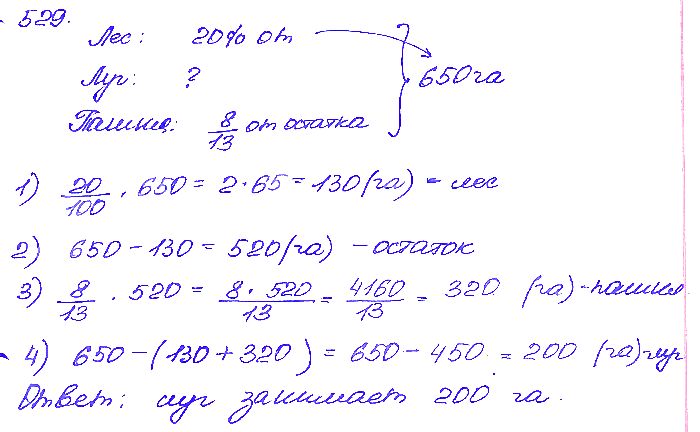 529.
Лес: 20% от
Луг: ? 650 га
Пашня: 8/13 от остатка
1) 20/100 · 650 = 2 · 65 = 130 (га) - лес
2) 650 - 130 = 520 (га) - остаток
3) 8/13 · 520 = 8 · 520/13 = 4160/13 = 320 (га) - пашня
4) 650 - (130 + 320) = 650 - 450 = 200 (га) луг
Ответ: луг занимает 200 га.